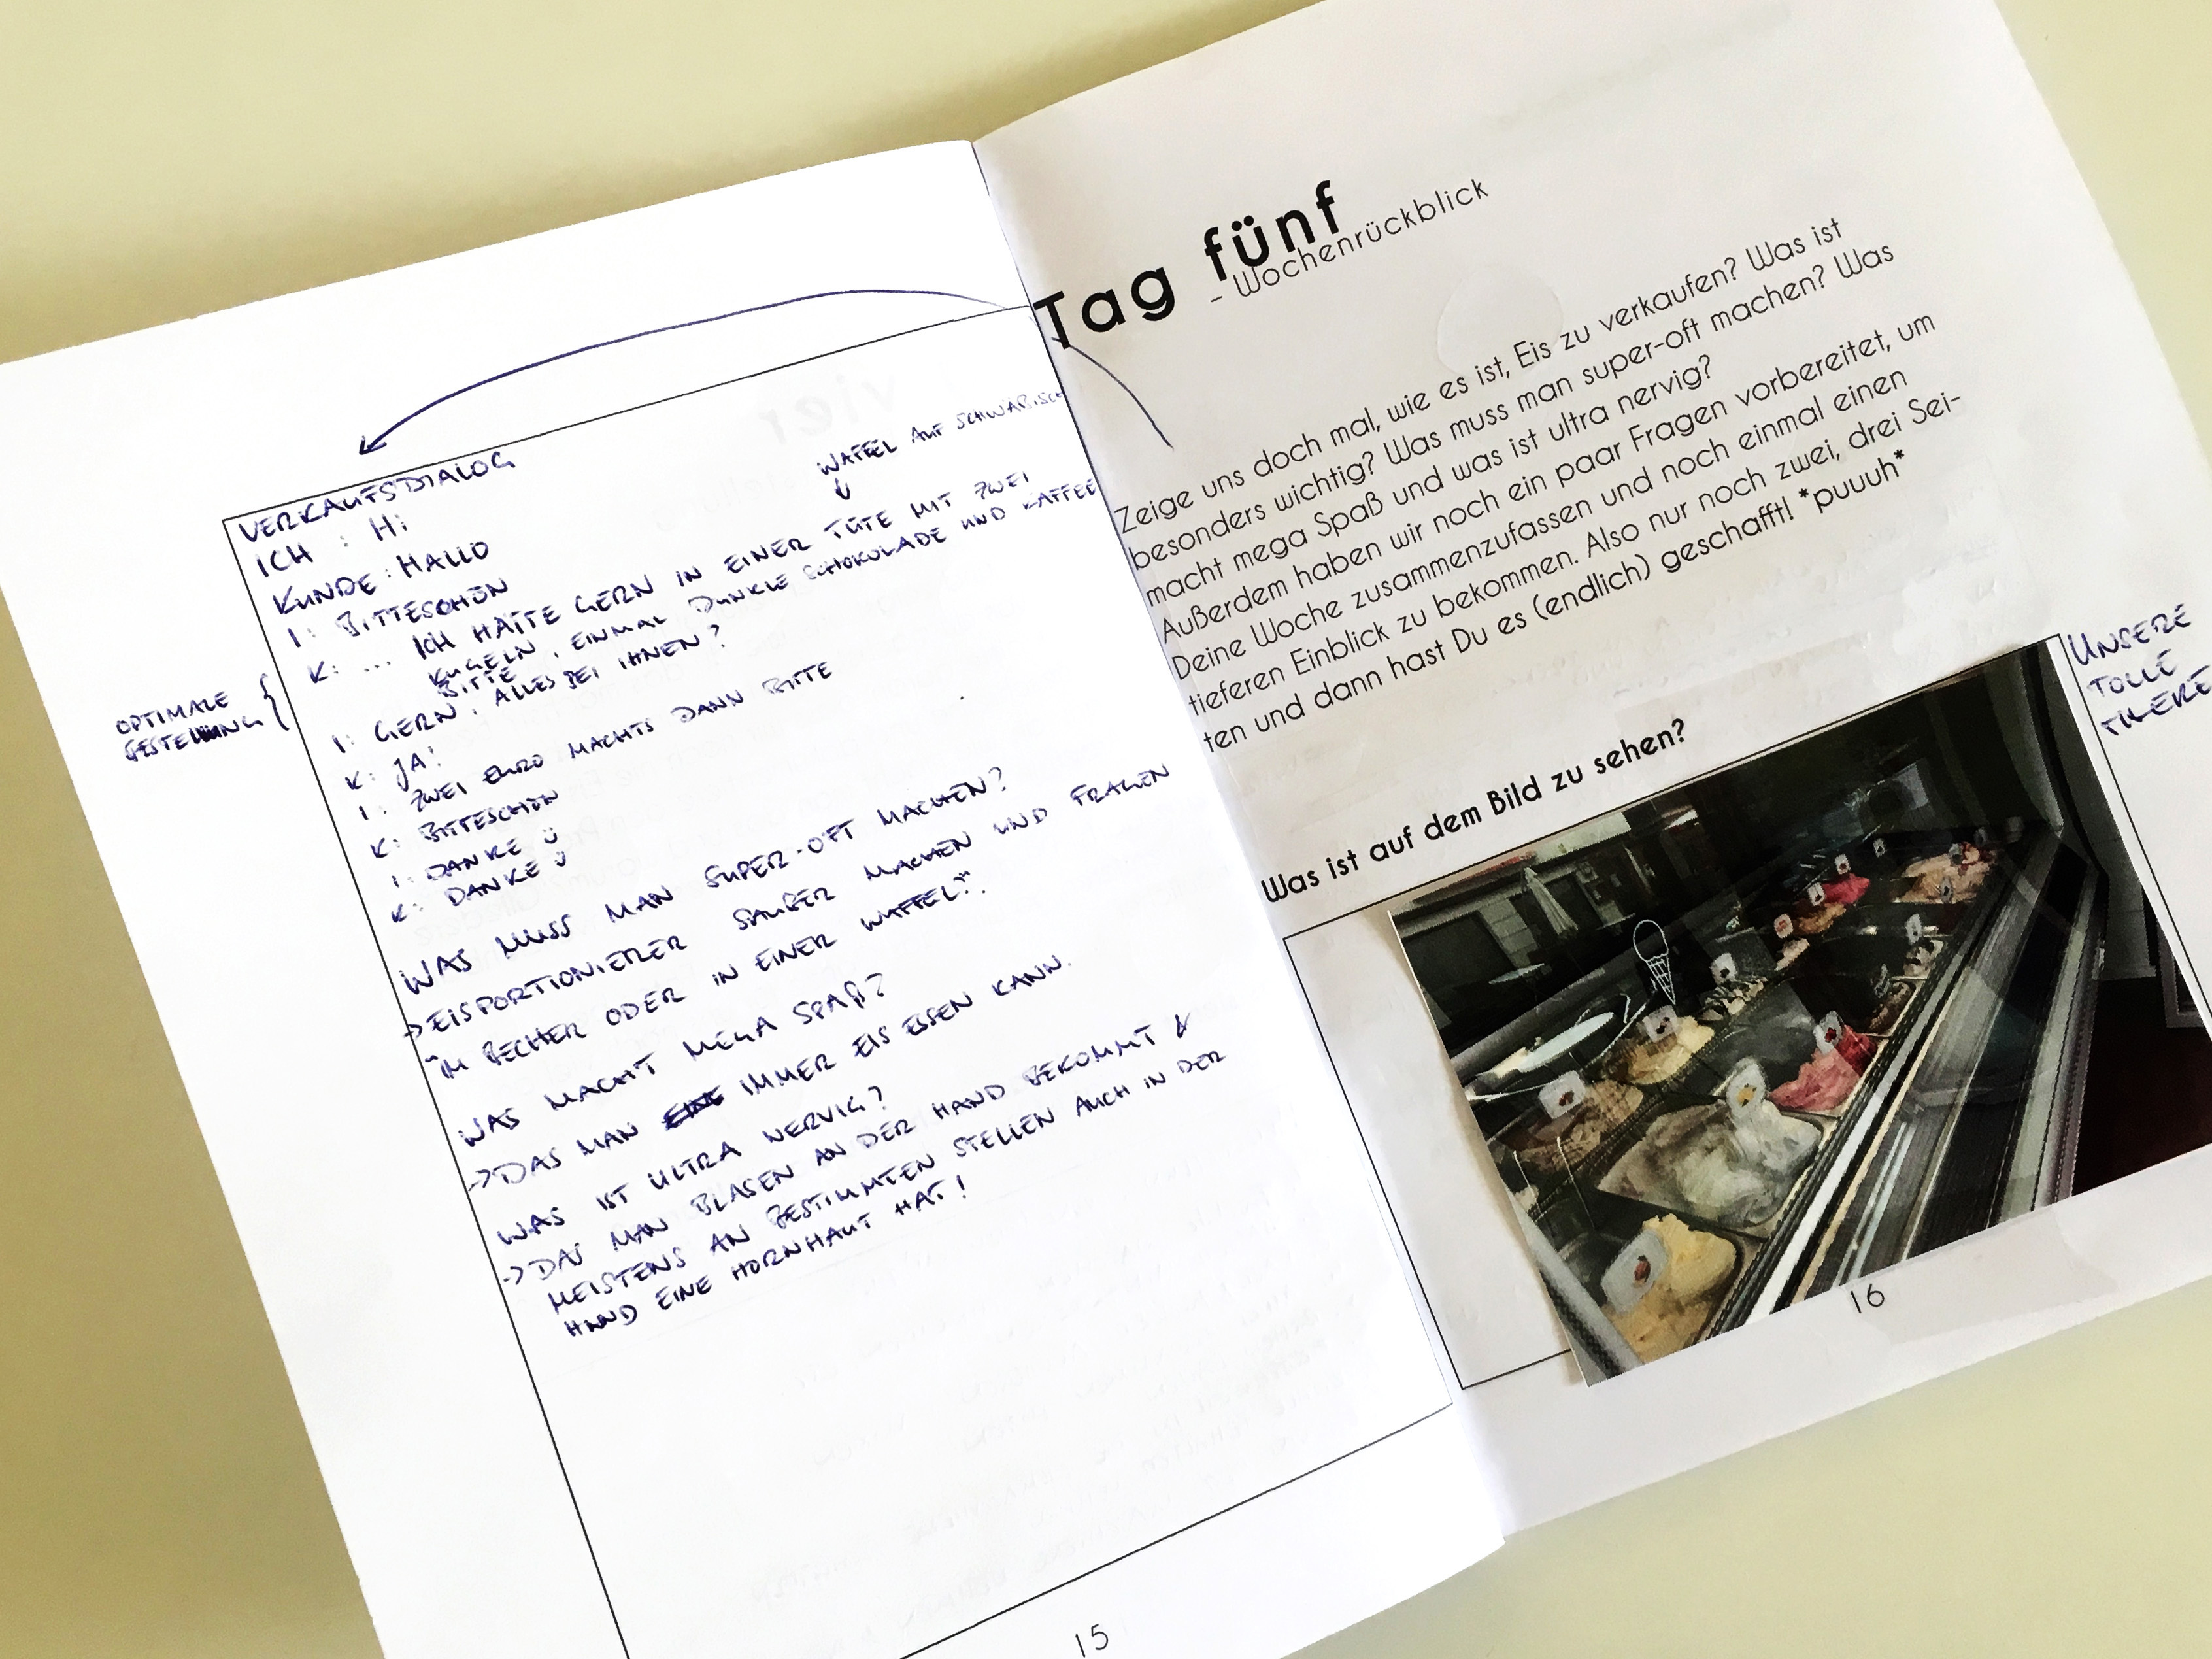 WAFFEL AUF SCHWÄBISCH
VERKAUFSDIALOG
ICH : Hi
KUNDE: HALLO
I: BITTESCHÖN
K: ... ICH HÄTTE GERN IN EINER TÜTE MIT ZWEI
KUGELN, EINMAL DUNKLE SCHOKOLADE UND KAFFEE
BITTE
OPTIMALE
BESTELLUNG
I: GERN, ALLES BEI IHNEN?
K: JA!
I: ZWEI EURO MACHTS DANN BITTE
K: BITTESCHÖN
I: DANKE Ü
K: DANKE Ü
WAS MUSS MAN SUPER-OFT MACHEN?
→ EISPORTIONIERER SAUBER MACHEN UND FRAGEN
"IM BECHER ODER IN EINER WAFFEL?".
WAS MACHT MEGA SPAß?
→ DAS MAN IMMER EIS ESSEN KANN.
WAS IST ULTRA NERVIG?
→ DAS MAN BLASEN AN DER HAND BEKOMMT &
MEISTENS AN BESTIMMTEN STELLEN AUCH IN DER
HAND EINE HORNHAUT HAT!
15
Tag fünf
- Wochenrückblick
Zeige uns doch mal, wie es ist, Eis zu verkaufen? Was ist
besonders wichtig? Was muss man super-oft machen? Was
macht mega Spaß und was ist ultra nervig?
Außerdem haben wir noch ein paar Fragen vorbereitet, um
Deine Woche zusammenzufassen und noch einmal einen
tieferen Einblick zu bekommen. Also nur noch zwei, drei Sei-
ten und dann hast Du es (endlich) geschafft! *puuuh*
Was ist auf dem Bild zu sehen?
UNSERE
TOLLE
THEKE
16